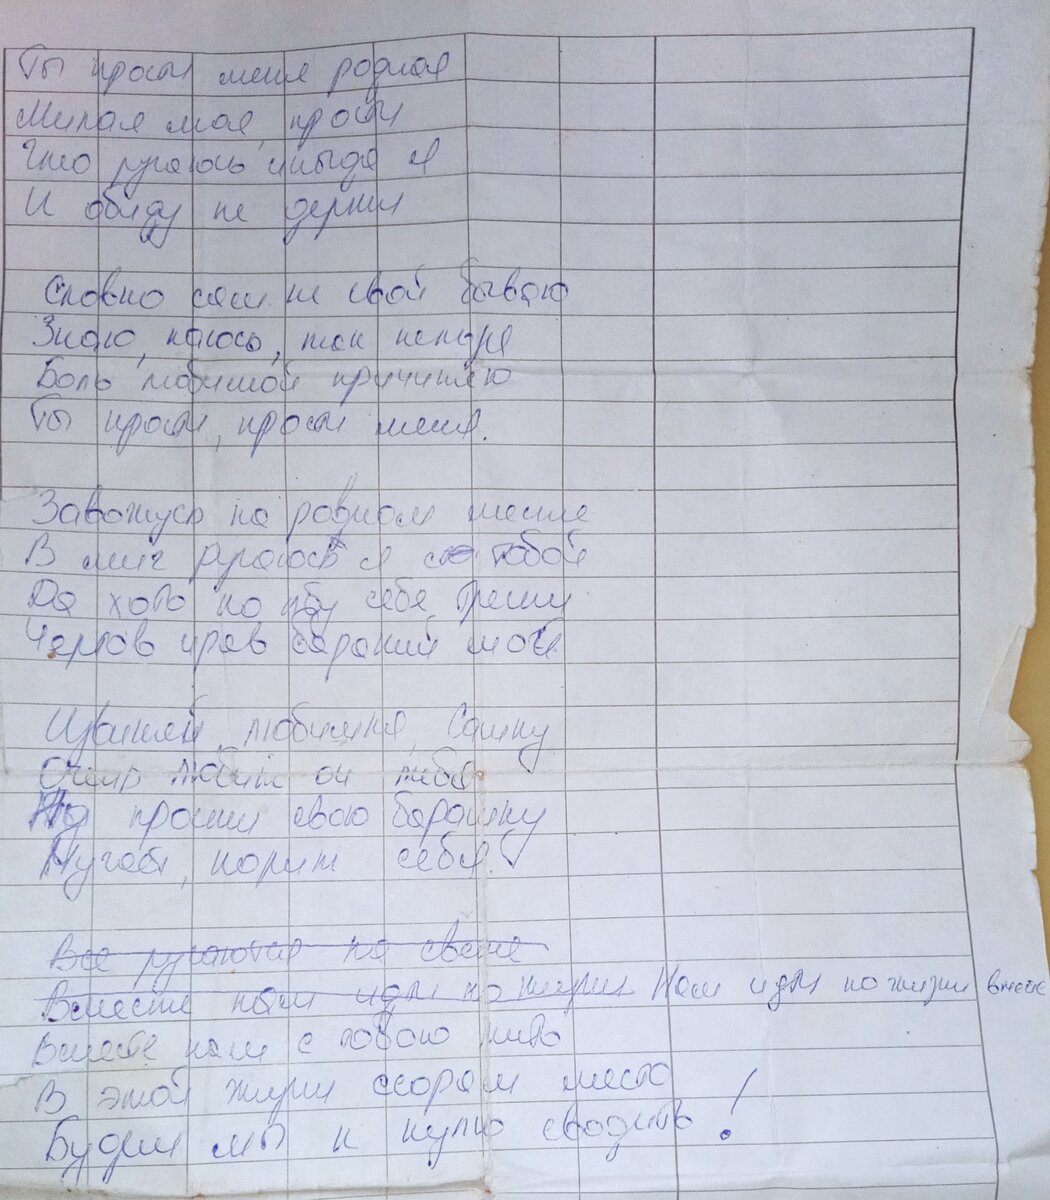 Ты прости меня родная
Милая моя, прости
Что ругаюсь иногда я
И обиду не держи
Словно сам не свой бываю
Знаю, каюсь, так нельзя
Боль любимой причиняю
Ты прости, прости меня.
Завожусь на ровном месте
В миг ругаюсь я с тобой
Да хоть по лбу себя тресну
Чертов нрав бараний мой
Извиняй, любимка, Сашку
Очень любит он тебя
Ну прости свою барашку
Мучает, корит себя.
Все ругаются на свете
Вместе нам идти по жизни Нам идти по жизни вместе
Вместе нам с тобою жить
В этой жизни ссорам место
Будем мы к нулю сводить!